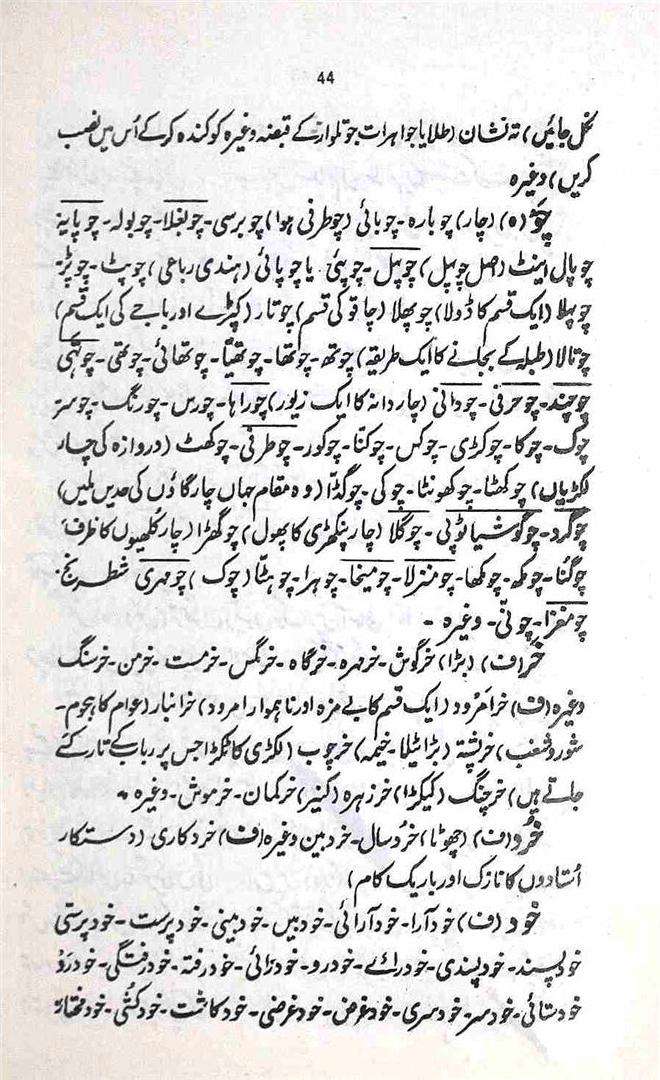 44
نکل جائیں) تہ نشان (طلا یا جواہرات جو تلوار کے قبضہ وغیرہ کو کندہ کر کے اُس میں نصب
کریں) وغیرہ
چَو (ہ) (چار) چوبارہ۔ چوبائی (چوطرفی ہوا) چوبرسی۔ چوبغلا۔ چوبولہ۔ چوپایہ
چوپال اینٹ (اصل چوپل) چوپل۔ چوپئی یا چوپائی (ہندی رباعی) چوپٹ۔ چوپڑ۔
چوپہلا (ایک قسم کا ڈولا) چوپھلا (چاقو کی قسم) چوتار (کپڑے اور باجے کی ایک قسم)
چوتالا (طبلہ کے بجانے کا ایک طریقہ) چوتھ۔ چوتھا۔ چوتھیا۔ چوتھائی۔ چوتھی۔ چوتہی
چوچند۔ چوحرفی۔ چودانی (چار دانہ کا ایک زیور) چوراہا۔ چورس۔ چورنگ۔ چوسر
چوک۔ چوکا۔ چوکڑی۔ چوکس۔ چوکنّا۔ چوکور۔ چوطرفی۔ چوکھٹ (دروازہ کی چار
لکڑیاں) چوکھٹا۔ چوکھونٹا۔ چوکی۔ چوگڈّا (وہ مقام جہاں چار گاؤں کی حدیں ملیں)
چوگرد۔ چوگوشیا ٹوپی۔ چوگلا (چار پنکھڑی کا پھول) چوگھڑا (چار کلھیوں کا ظرف)
چوگنا۔ چومکھ۔ چومکھا۔ چومنزلا۔ چومیخا۔ چوہرا۔ چوہٹّا (چوک) چومہری شطرنج۔
چومغزا۔ چونّی۔ وغیرہ۔
خَر (ف) (بڑا) خرگوش۔ خرمہرہ۔ خرگاہ۔ خرمگس۔ خرمست۔ خرمن۔ خرسنگ
وغیرہ (ف) خرامرود (ایک قسم کا بے مزہ اور ناہموار امرود) خرانبار (عوام کا ہجوم۔
شور و شغب) خرپشتہ (بڑا ٹیلا۔ خیمہ) خرچوب (لکڑی کا ٹکڑا جس پر رباب کے تار کسے
جاتے ہیں) خرچنگ (کیکڑا) خرزہرہ (کنیر) خرکمان۔ خرموش۔ وغیرہ۔
خُرد (ف) (چھوٹا) خُردسال۔ خردبین وغیرہ (ف) خردکاری (دستکار
اُستادوں کا نازک اور باریک کام)
خود (ف) خودآرا۔ خودآرائی۔ خودبیں۔ خودبینی۔ خودپرست۔ خودپرستی
خودپسند۔ خودپسندی۔ خودرائے۔ خودرو۔ خودرائی۔ خودرفتہ۔ خودرفتگی۔ خودرَو
خودستائی۔ خودسر۔ خودسری۔ خودغرض۔ خودغرضی۔ خودکاشت۔ خودکُشی۔ خودمختار